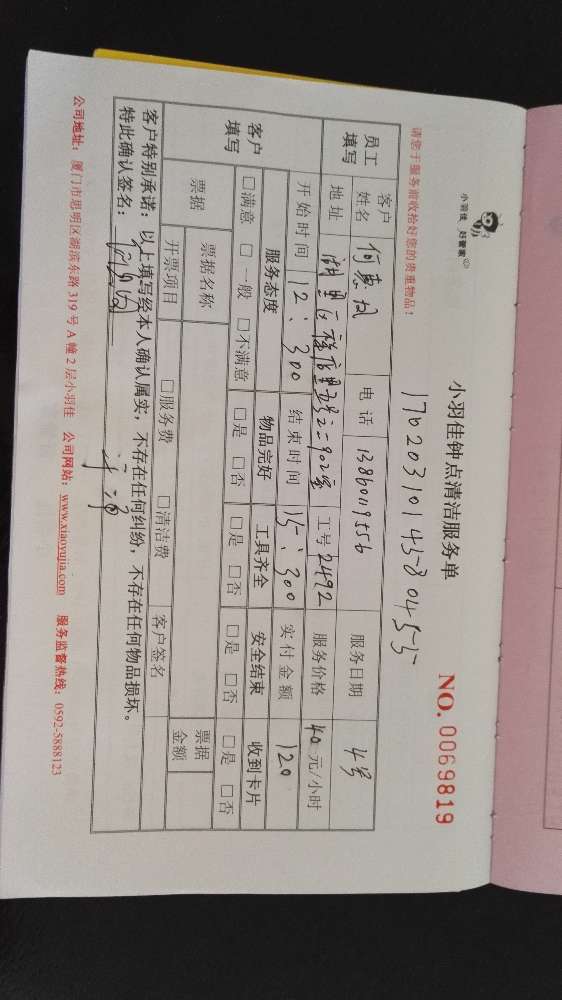 小羽佳 好管家
小羽佳钟点清洁服务单
NO. 0069819
请您于服务前收拾好您的贵重物品！
17020310145-80455
员工填写 客户姓名 何惠 电话 13860119556 服务日期 4号
地址 工号 2492 服务价格 40元/小时
开始时间 12:300 结束时间 15:300 实付金额 120
客户填写 服务态度 物品完好 工具齐全 安全结束 收到卡片
□满意 □一般 □不满意 □是 □否 □是 □否 □是 □否 □是 □否
票据 票据名称 票据金额
开票项目 □服务费 □清洁费 客户签名
客户特别承诺：以上填写经本人确认属实，不存在任何纠纷，不存在任何物品损坏。
特此确认签名：
公司地址：厦门市思明区湖滨东路319号A幢2层小羽佳 公司网站：www.xiaoyujia.com 服务监督热线：0592-5888123